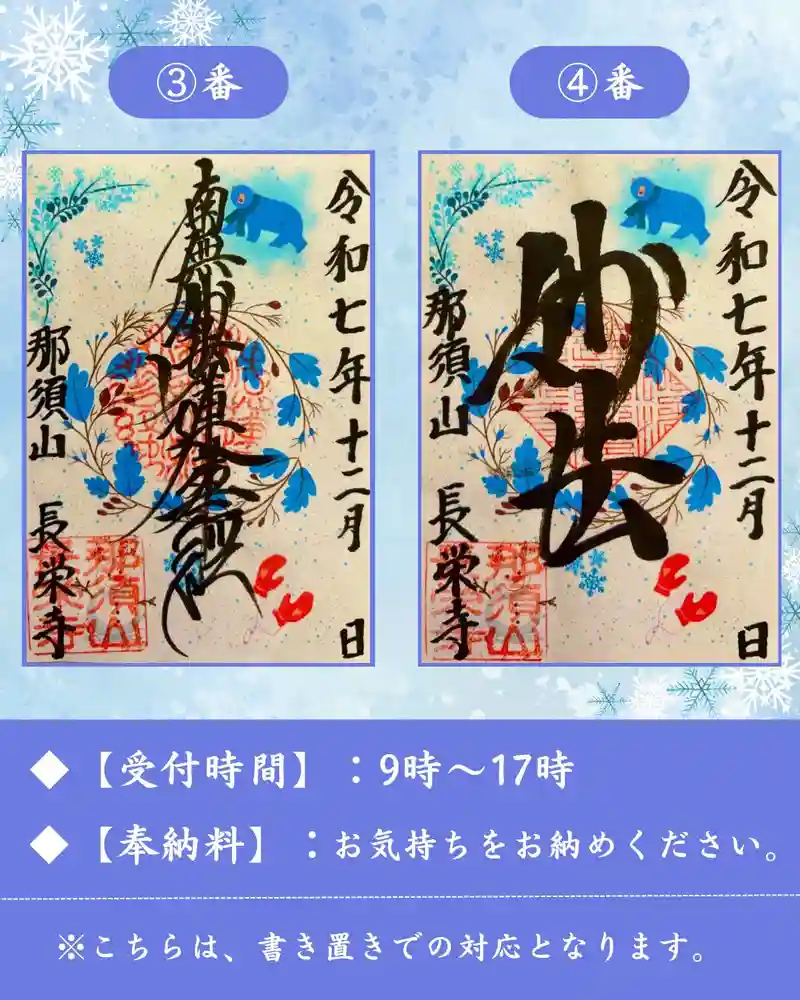 ③番
令和七年十二月 日
南無妙法蓮華経
那須山 長栄寺
那須山
④番
令和七年十二月 日
妙法
那須山 長栄寺
那須山
◆【受付時間】:9時~17時
◆【奉納料】:お気持ちをお納めください。
※こちらは、書き置きでの対応となります。